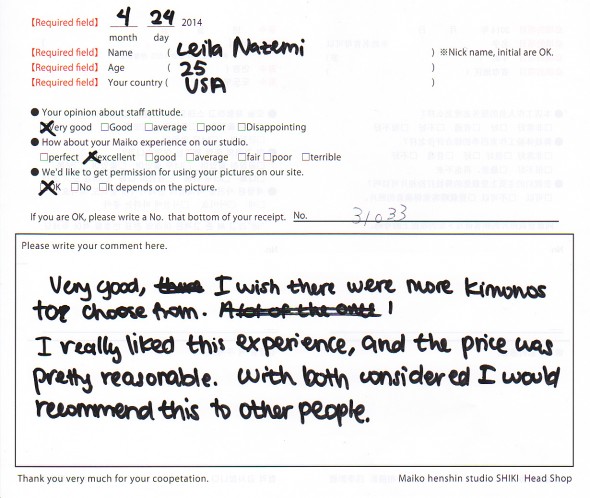 【Required field】 4 24 2014
month day
【Required field】 Name ( Leila Nazemi ) ※Nick name, initial are OK.
【Required field】 Age ( 25 )
【Required field】 Your country ( USA )
● Your opinion about staff attitude.
☒Very good □Good □average □poor □Disappointing
● How about your Maiko experience on our studio.
□perfect ☒excellent □good □average □fair □poor □terrible
● We'd like to get permission for using your pictures on our site.
☒OK □No □It depends on the picture.
If you are OK, please write a No. that bottom of your receipt. No. 31033
Please write your comment here.
Very good, I wish there were more kimonos
to choose from.
I really liked this experience, and the price was
pretty reasonable. With both considered I would
recommend this to other people.
Thank you very much for your coopetation. Maiko henshin studio SHIKI Head Shop